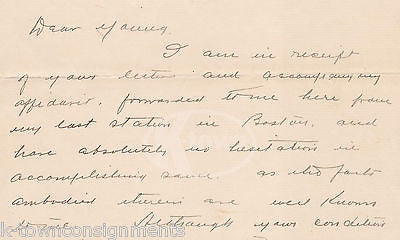 Dear Young,
I am in receipt
of your letter and accompanying
affidavit, forwarded to me here from
my last station in Boston, and
have absolutely no hesitation in
accomplishing same as the facts
embodied therein are well known
to me. Although your condition
k-townconsignments